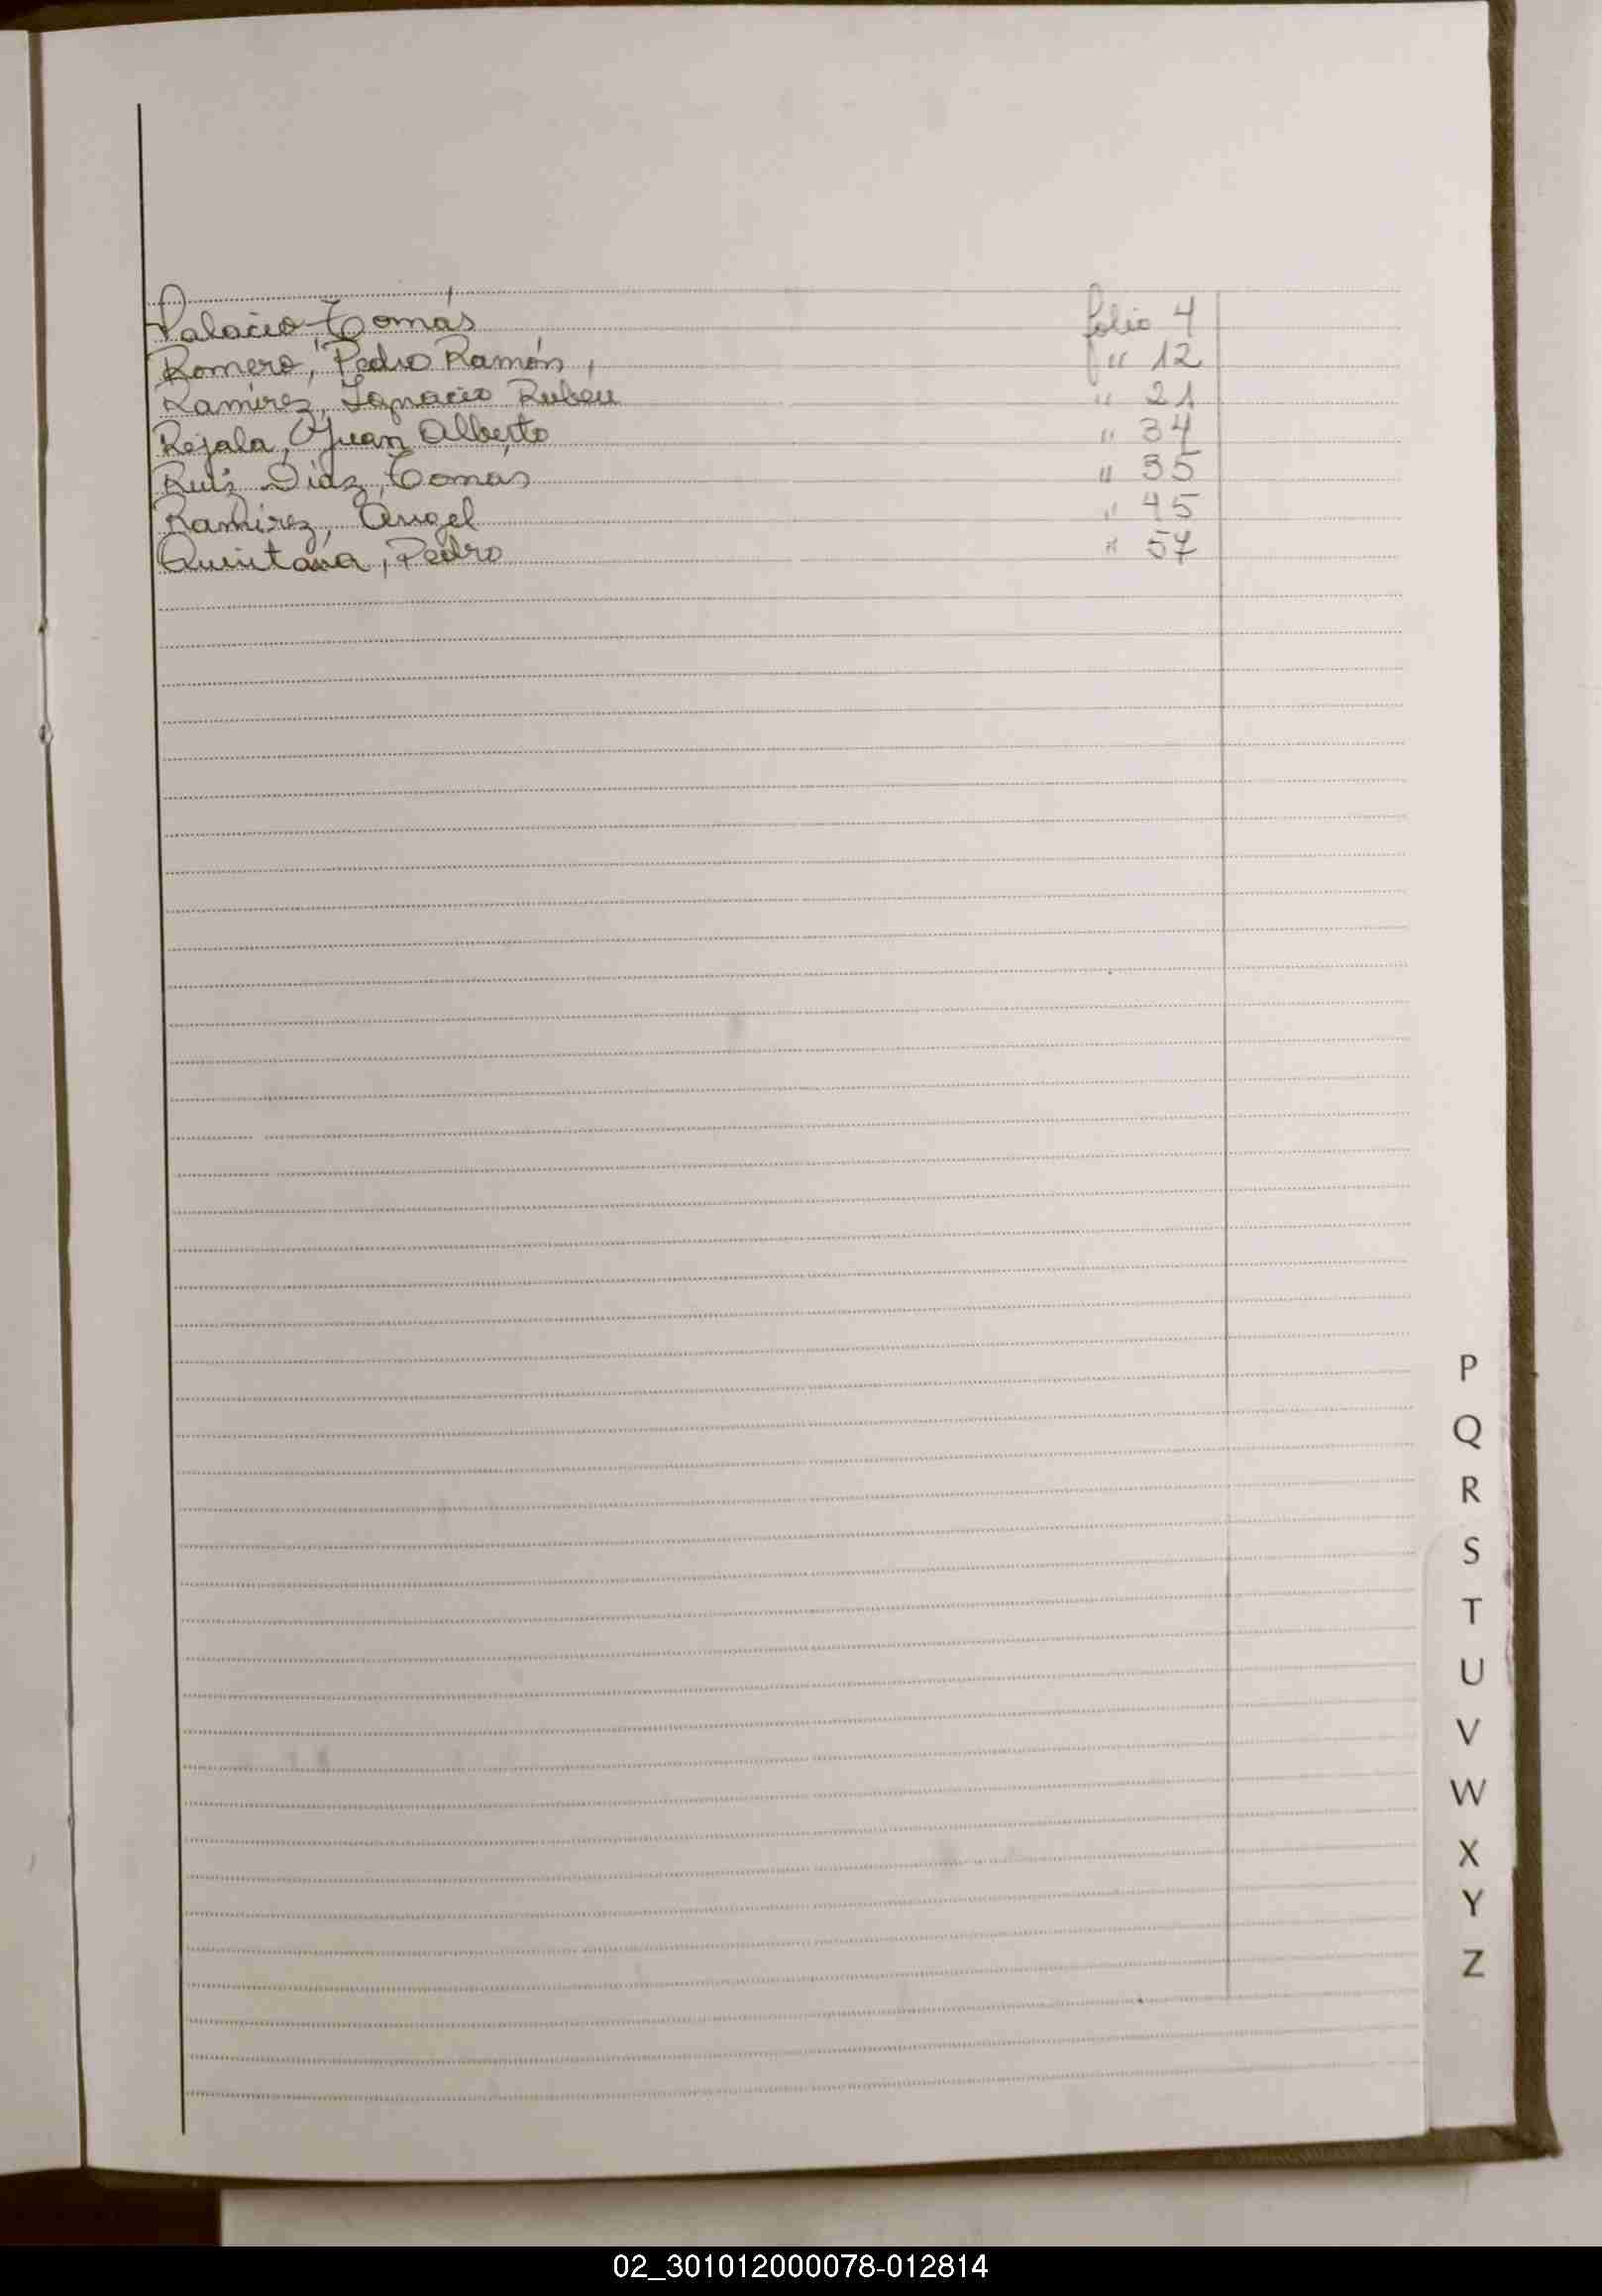 Palacio, Tomás folio 4
Romero, Pedro Ramón, " 12
Ramírez, Ignacio Ruben " 21
Rejala, Juan Alberto " 34
Ruiz Diaz, Tomás " 35
Ramírez, Ángel " 45
Quintana, Pedro " 57
P
Q
R
S
T
U
V
W
X
Y
Z
02_301012000078-012814